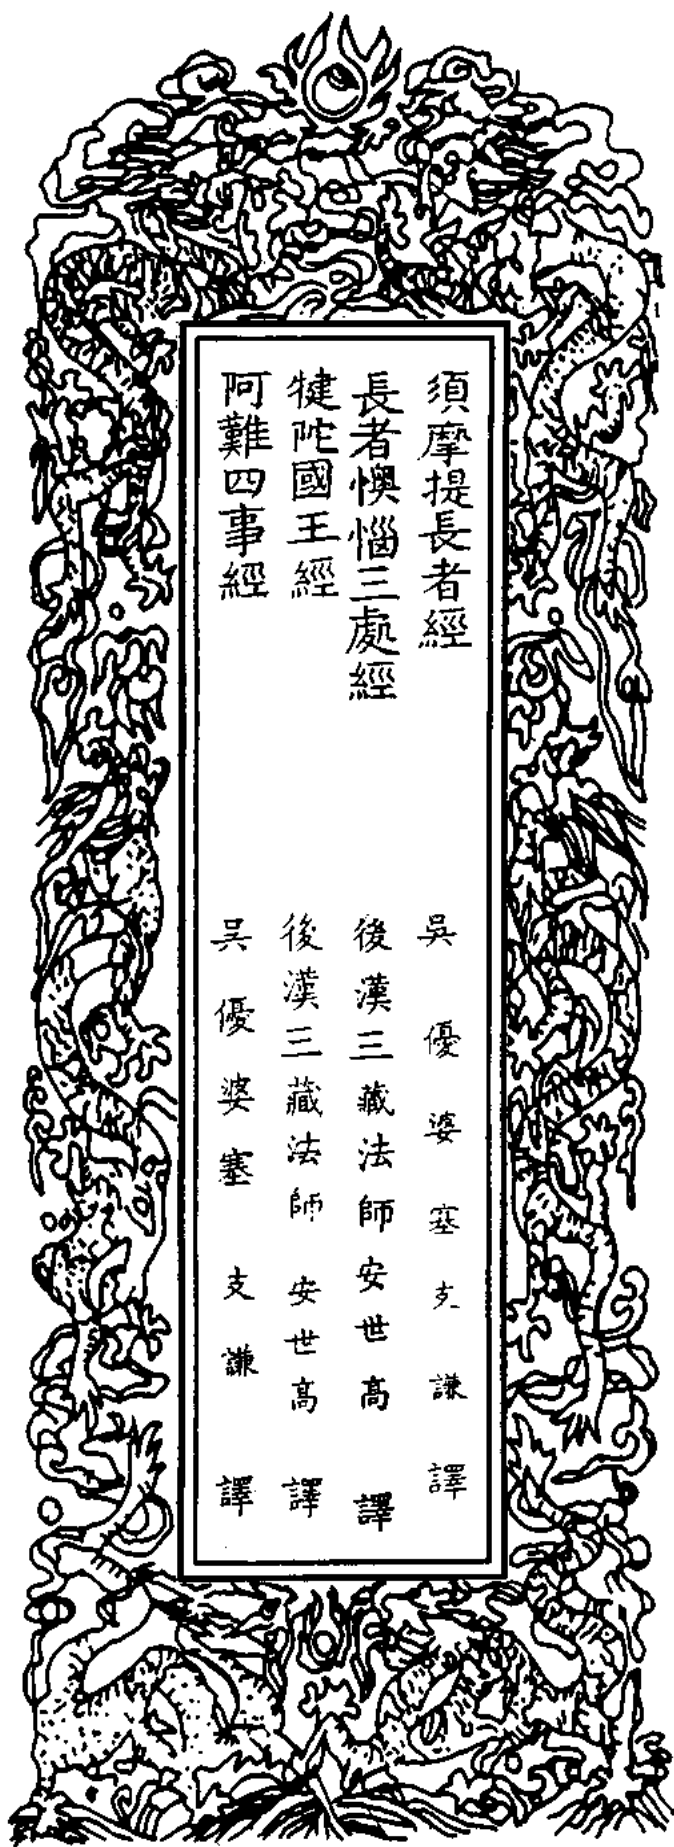 須摩提長者經　吳優婆塞支謙譯
長者懊惱三處經　後漢三藏法師安世高譯
犍陀國王經　後漢三藏法師安世高譯
阿難四事經　吳優婆塞支謙譯